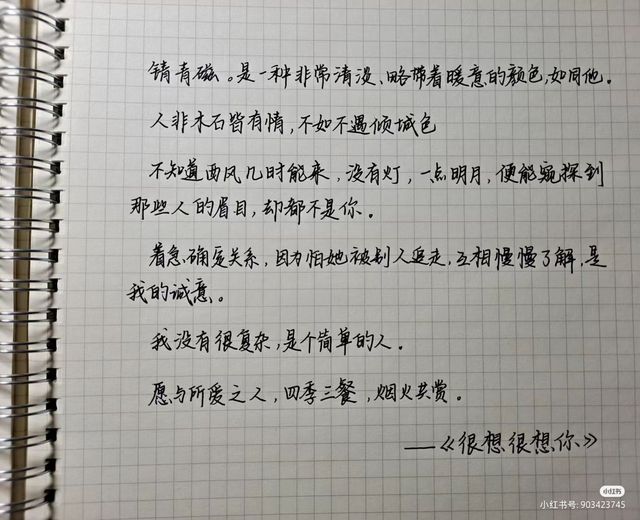 锖青磁。是一种非常清淡、略带着暖意的颜色,如同他。
人非木石皆有情,不如不遇倾城色
不知道西风几时能来,没有灯,一点明月,便能窥探到
那些人的眉目,却都不是你。
着急确爱关系,因为怕她被别人追走,互相慢慢了解,是
我的诚意。
我没有很复杂,是个简单的人。
愿与所爱之人,四季三餐,烟火共赏。
——《很想很想你》
小红书
小红书号: 903423745